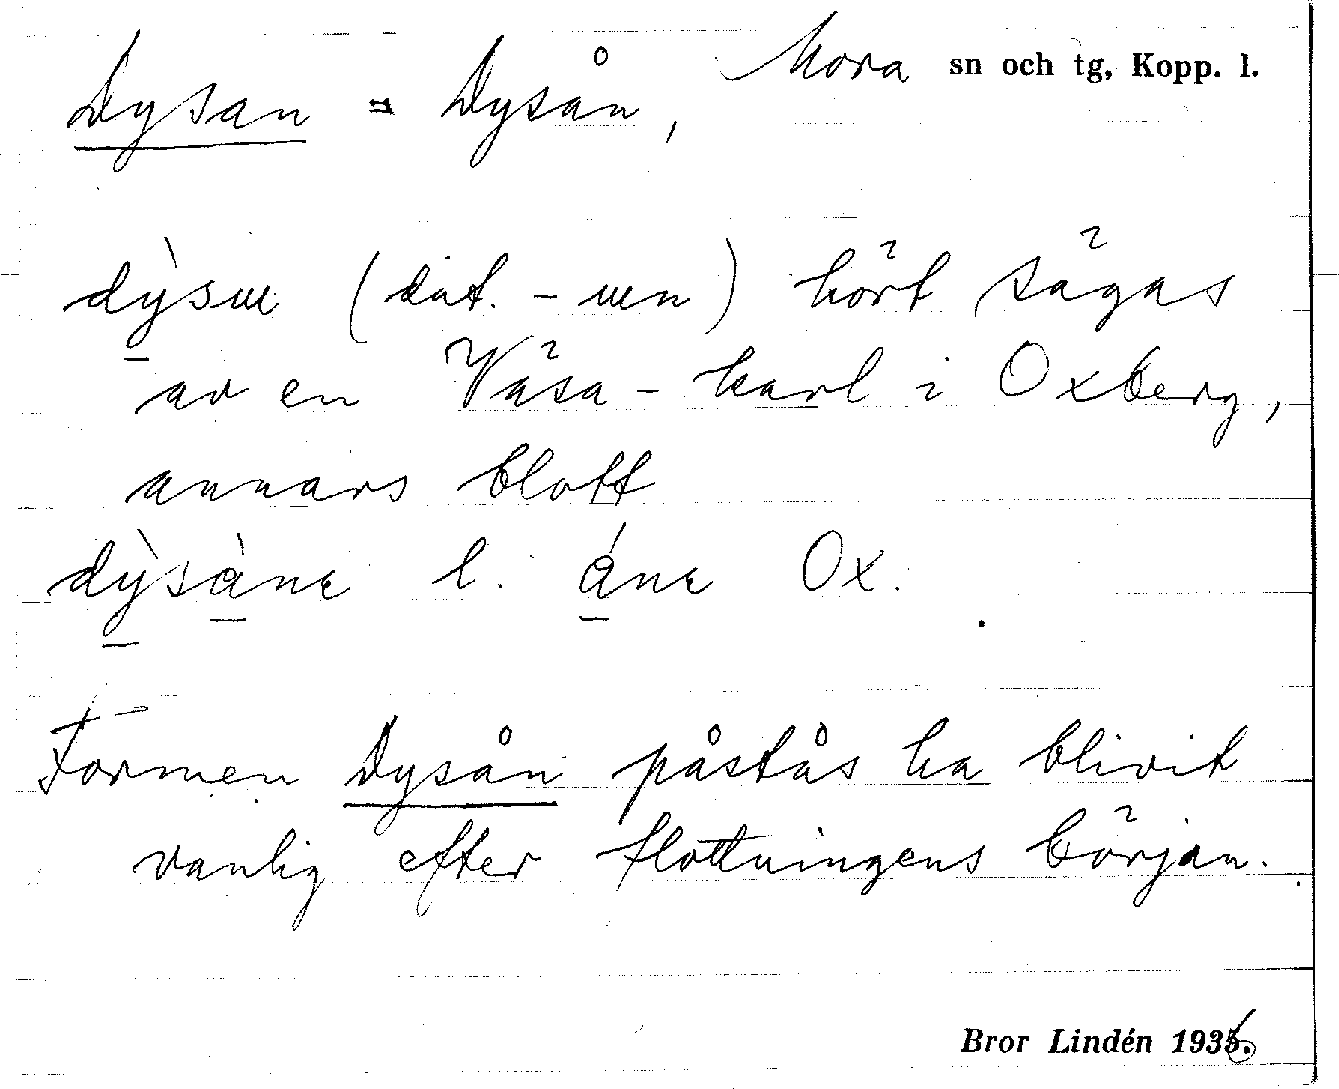 Mora sn och tg, Kopp. l.
Dysan = Dysån,
dỳsɯ (dat. -ɯn) hört sägas
av en Våsa-karl i Oxberg,
annars blott
dỳsàne l. áne Ox.
Formen Dysån påstås ha blivit
vanlig efter flottningens början.
Bror Lindén 1936.